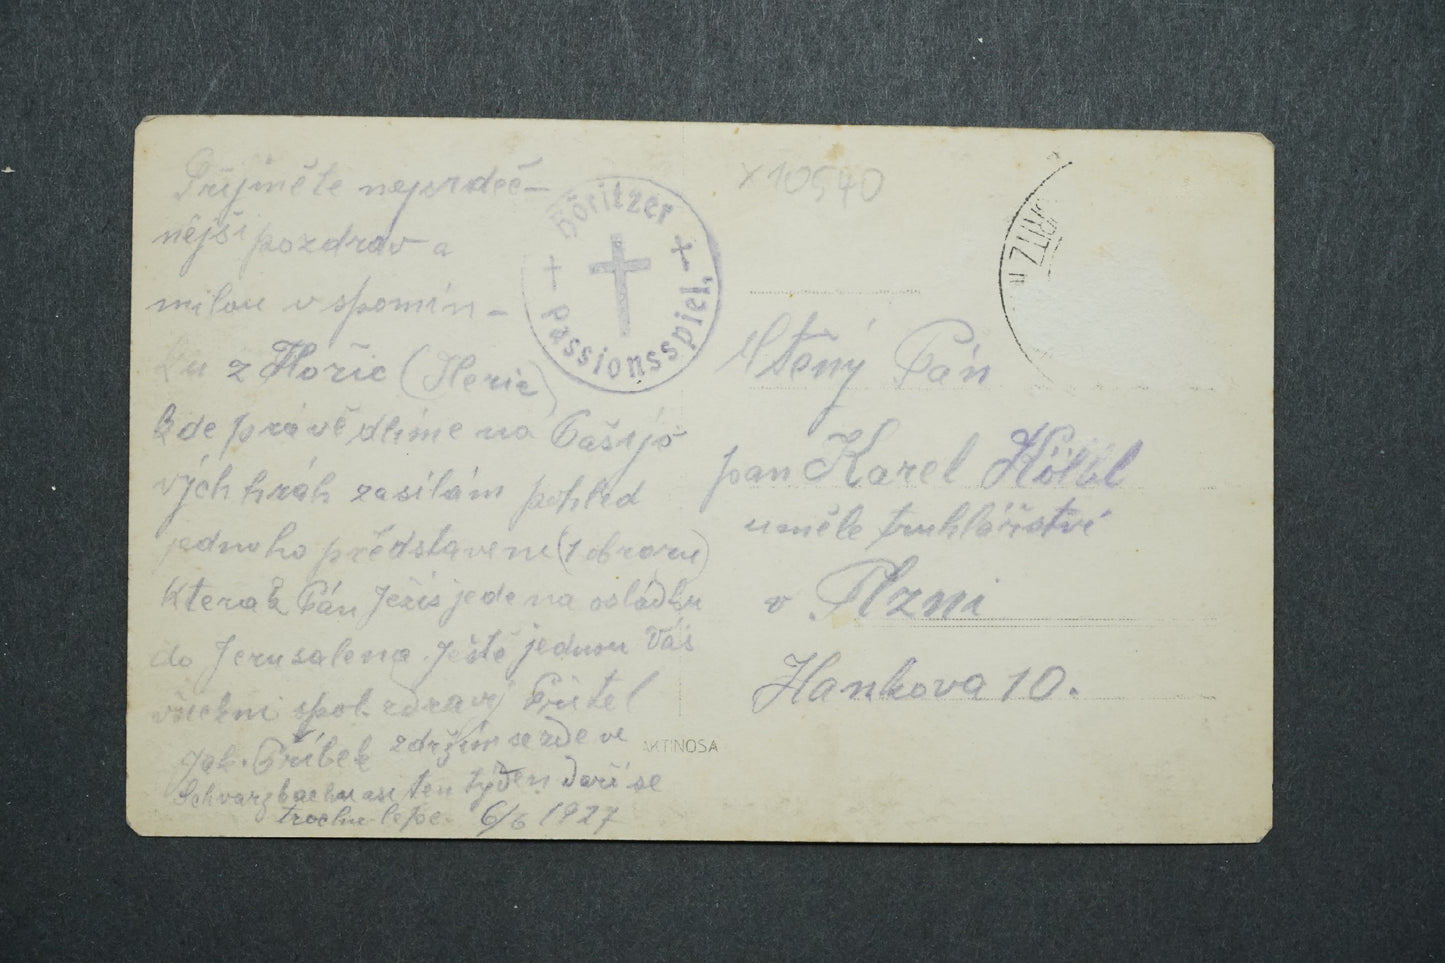 Přijměte nejsrdeč-
nější pozdrav a
milou v spomín-
ku z Hořic (Heric)
kde právě dlíme na Pašijo
vých hráh zasílám pohled
jednoho představení (1 obrazu)
Kterak Pán Ježis jede na osládku
do Jerusalema. Ještě jednou Vás
všickni spol. zdravý Přítel
Jak. Příbek zdržím se zde ve
Schvarzbachu asi ten týden daří se
trochu lepe. 6/6 1927
Höritzer
Passionsspiel,
x10540
RITZ
Ctěný Pán
pan Karel Hölzl
umělé truhlářství
v Plzni
Hankova 10.
AKTINOSA